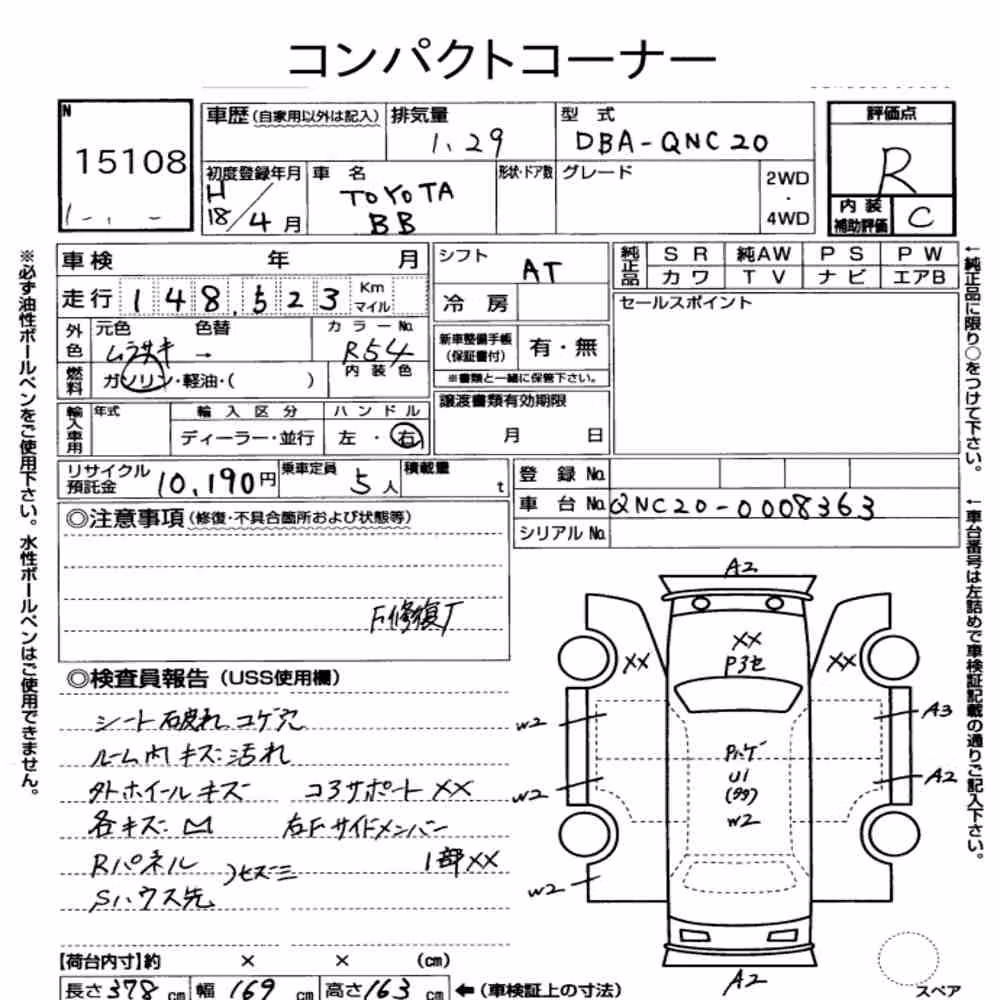 コンパクトコーナー
N
15108
車歴(自家用以外は記入)
排気量
1.29
型 式
DBA-QNC20
評価点
R
初度登録年月
H
18/4月
車 名
TOYOTA
BB
形状・ドア数
グレード
2WD
・
4WD
内 装
補助評価
C
車検 年 月
走行 148,523 Km
マイル
外色
元色 色替
ムラサキ →
カラーNo.
R54
燃料
ガソリン・軽油・( )
内装色
輸入車用
年式
輸入区分
ディーラー・並行
ハンドル
左・右
シフト
AT
冷 房
新車整備手帳
(保証書付)
有・無
※書類と一緒に保管下さい。
譲渡書類有効期限
月 日
純正品
SR 純AW PS PW
カワ TV ナビ エアB
セールスポイント
リサイクル
預託金 10,190円
乗車定員
5人
積載量
t
登 録 No.
車 台 No. QNC20-0008363
シリアル No.
◎注意事項(修復・不具合箇所および状態等)
F修復歴
◎検査員報告(USS使用欄)
シート破れ コゲ穴
ルーム内キズ 汚れ
外ホイールキズ コアサポートXX
各キズ凹 右Fサイドメンバー
Rパネル 1部XX
Sハウス先
A2
XX
P3セ
XX
XX
W2
W2
W2
A3
A2
Pハゲ
U1
W2
A2
【荷台内寸】約 × × (cm)
長さ378cm 幅169cm 高さ163cm ←(車検証上の寸法)
スペア
※必ず油性ボールペンをご使用下さい。水性ボールペンはご使用できません。
←純正品に限り○をつけて下さい。
←車台番号は左詰めで車検証記載の通りご記入下さい。